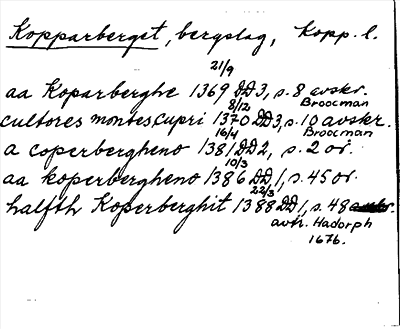 Kopparberget, bergslag, Kopp. l.
21/9
aa Koparberghe 1369 DD3, s. 8 avskr.
8/12 Broocman
cultores montes cupri 1370 DD3, s. 10 avskr.
16/4 Broocman
a coperbergheno 1381 DD2, s. 2 or.
10/3
aa koperbergheno 1386 DD1, s. 45 or.
22/3
halfth Koperberghit 1388 DD1, s. 48
avtr. Hadorph
1676.